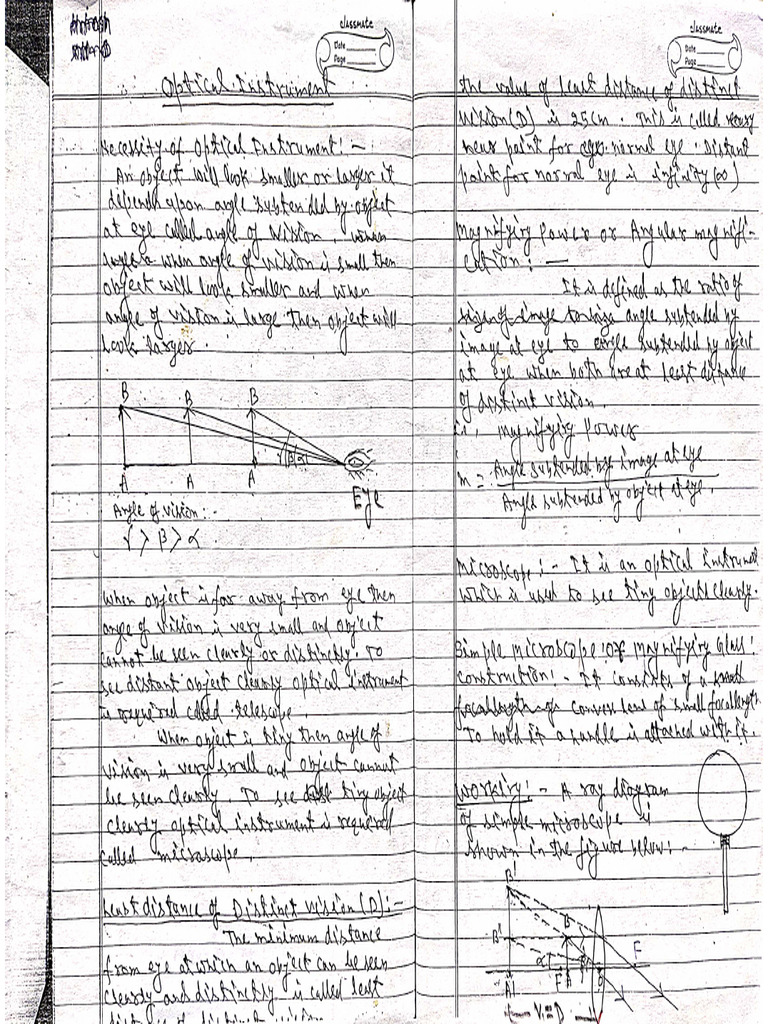 classmate
Date
Page
Optical Instrument
Necessity of Optical Instrument :-
An object will look smaller or larger it
depends upon angle subtended by object
at eye called angle of vision. when
angle when angle of vision is small then
object will look smaller and when
angle of vision is large then object will
look larger.
B B B
γ β α
A A A
Eye
Angle of vision:-
γ > β > α
when object is far away from eye then
angle of vision is very small and object
cannot be seen clearly or distinctly. To
see distant object clearly optical instrument
is required called telescope.
When object is tiny then angle of
vision is very small and object cannot
be seen clearly. To see tiny object
clearly optical instrument is required
called microscope.
Least distance of Distinct vision (D):-
The minimum distance
from eye at which an object can be seen
clearly and distinctly is called least
distance of distinct vision
classmate
Date
Page
the value of least distance of distinct
vision(D) is 25cm. This is called
near point for normal eye. Distant
point for normal eye is infinity(∞)
Magnifying Power or Angular magnifi-
cation: —
It is defined as the ratio of
size of image to size angle subtended by
image at eye to angle subtended by object
at eye when both are at least distance
of distinct vision.
i.e., magnifying Power
m = Angle subtended by image at eye
Angle subtended by object at eye.
Microscope:- It is an optical instrument
which is used to see tiny objects clearly.
Simple microscope or magnifying Glass:
construction:- It consists of a small
focal length convex lens of small focal length
To hold it a handle is attached with it.
Working:- A ray diagram
of simple microscope is
shown in the figure below:-
B'
B' B
α F
A' F A O
V=D